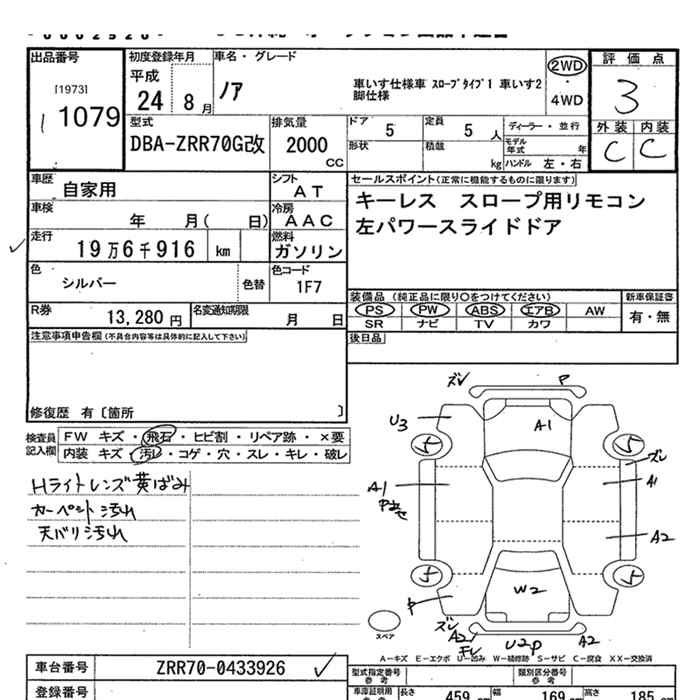 出品番号
[1973]
1079
初度登録年月
平成
24 8月
車名・グレード
ノア
車いす仕様車 スロープタイプ1 車いす2
脚仕様
2WD
・
4WD
評価点
3
外装 内装
C C
型式
DBA-ZRR70G改
排気量
2000
CC
ドア 5
定員 5 人
形状
積載 kg
ディーラー・並行
モデル年式 年
ハンドル 左・右
車歴 自家用
シフト AT
車検 年 月( 日)
冷房 AAC
走行 19万6千916 km
燃料 ガソリン
色 シルバー 色替
色コード 1F7
R券 13,280円
名変通知期限 月 日
セールスポイント(正常に機能するものに限ります)
キーレス スロープ用リモコン
左パワースライドドア
装備品 (純正品に限り○をつけてください)
新車保証書
PS PW ABS エアB AW
SR ナビ TV カワ
有・無
後日品
注意事項申告欄(不具合内容等は具体的に記入して下さい)
修復歴 有〔箇所 〕
検査員記入欄
FW キズ・飛石・ヒビ割・リペア跡・×要
内装 キズ・汚レ・コゲ・穴・スレ・キレ・破レ
Hライトレンズ黄ばみ
カーペット汚れ
天バリ汚れ
ズレ P
U3 A1
5 5
ズレ
A1 A1
A2
5 5
W2
ズレ
A2 U2P A2
スペア
A-キズ E-エクボ U-凹み W-補修跡 S-サビ C-腐食 XX-交換済
車台番号 ZRR70-0433926
登録番号
型式指定番号
参考
類別区分番号
参考
車庫証明用
長さ 459 幅 169 高さ 185